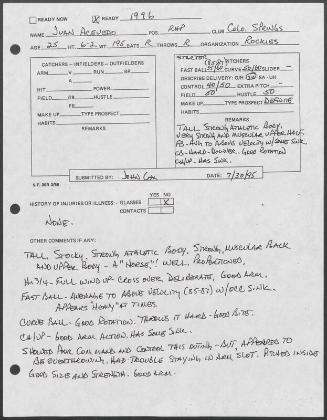 □ READY NOW ☒ READY 1996
NAME JUAN ACEVEDO POS RHP CLUB COLO. SPRINGS
AGE 25 HT. 6-2 WT. 195 BATS R THROWS R ORGANIZATION ROCKIES
CATCHERS – INFIELDERS – OUTFIELDERS
ARM RUN
HIT POWER
FIELD HUSTLE
MAKE UP TYPE PROSPECT
HABITS
REMARKS
STARTER
(85-87) PITCHERS
FAST BALL CURVE SLIDER –
DESCRIBE DELIVERY: O/H 3/4 SA - UH
CONTROL 40/50 EXTRA PITCH –
FIELD 50 HUSTLE 50
MAKE UP TYPE PROSPECT DEFINITE
HABITS
REMARKS
TALL, STRONG, ATHLETIC BODY,
VERY STRONG AND MUSCULAR UPPER HALF.
FB - AVG TO ABOVE VELOCITY W/SOME SINK.
CB - HARD - DOWNER. GOOD ROTATION
CH/UP - HAS SINK.
SUBMITTED BY: JOHN COX DATE: 7/20/95
HISTORY OF INJURIES OR ILLNESS - GLASSES YES NO X
CONTACTS
NONE.
OTHER COMMENTS IF ANY:
TALL, STOCKY, STRONG, ATHLETIC BODY, STRONG, MUSCULAR BACK
AND UPPER BODY - A "HORSE," WELL PROPORTIONED,
HI 3/4 - FULL WIND UP - CROSS OVER DELIBERATE, GOOD ARM.
FAST BALL - AVERAGE TO ABOVE VELOCITY (85-87) W/OCC SINK.
APPEARS "HEAVY" AT TIMES.
CURVE BALL - GOOD ROTATION. THROWS IT HARD - GOOD BITE.
CH/UP - GOOD ARM ACTION. HAS SOME SINK.
SHOWED POOR COMMAND AND CONTROL THIS OUTING - BUT, APPEARED TO
BE OVERTHROWING. HAD TROUBLE STAYING IN ARM SLOT. PITCHED INSIDE
GOOD SIZE AND STRENGTH. GOOD ARM.